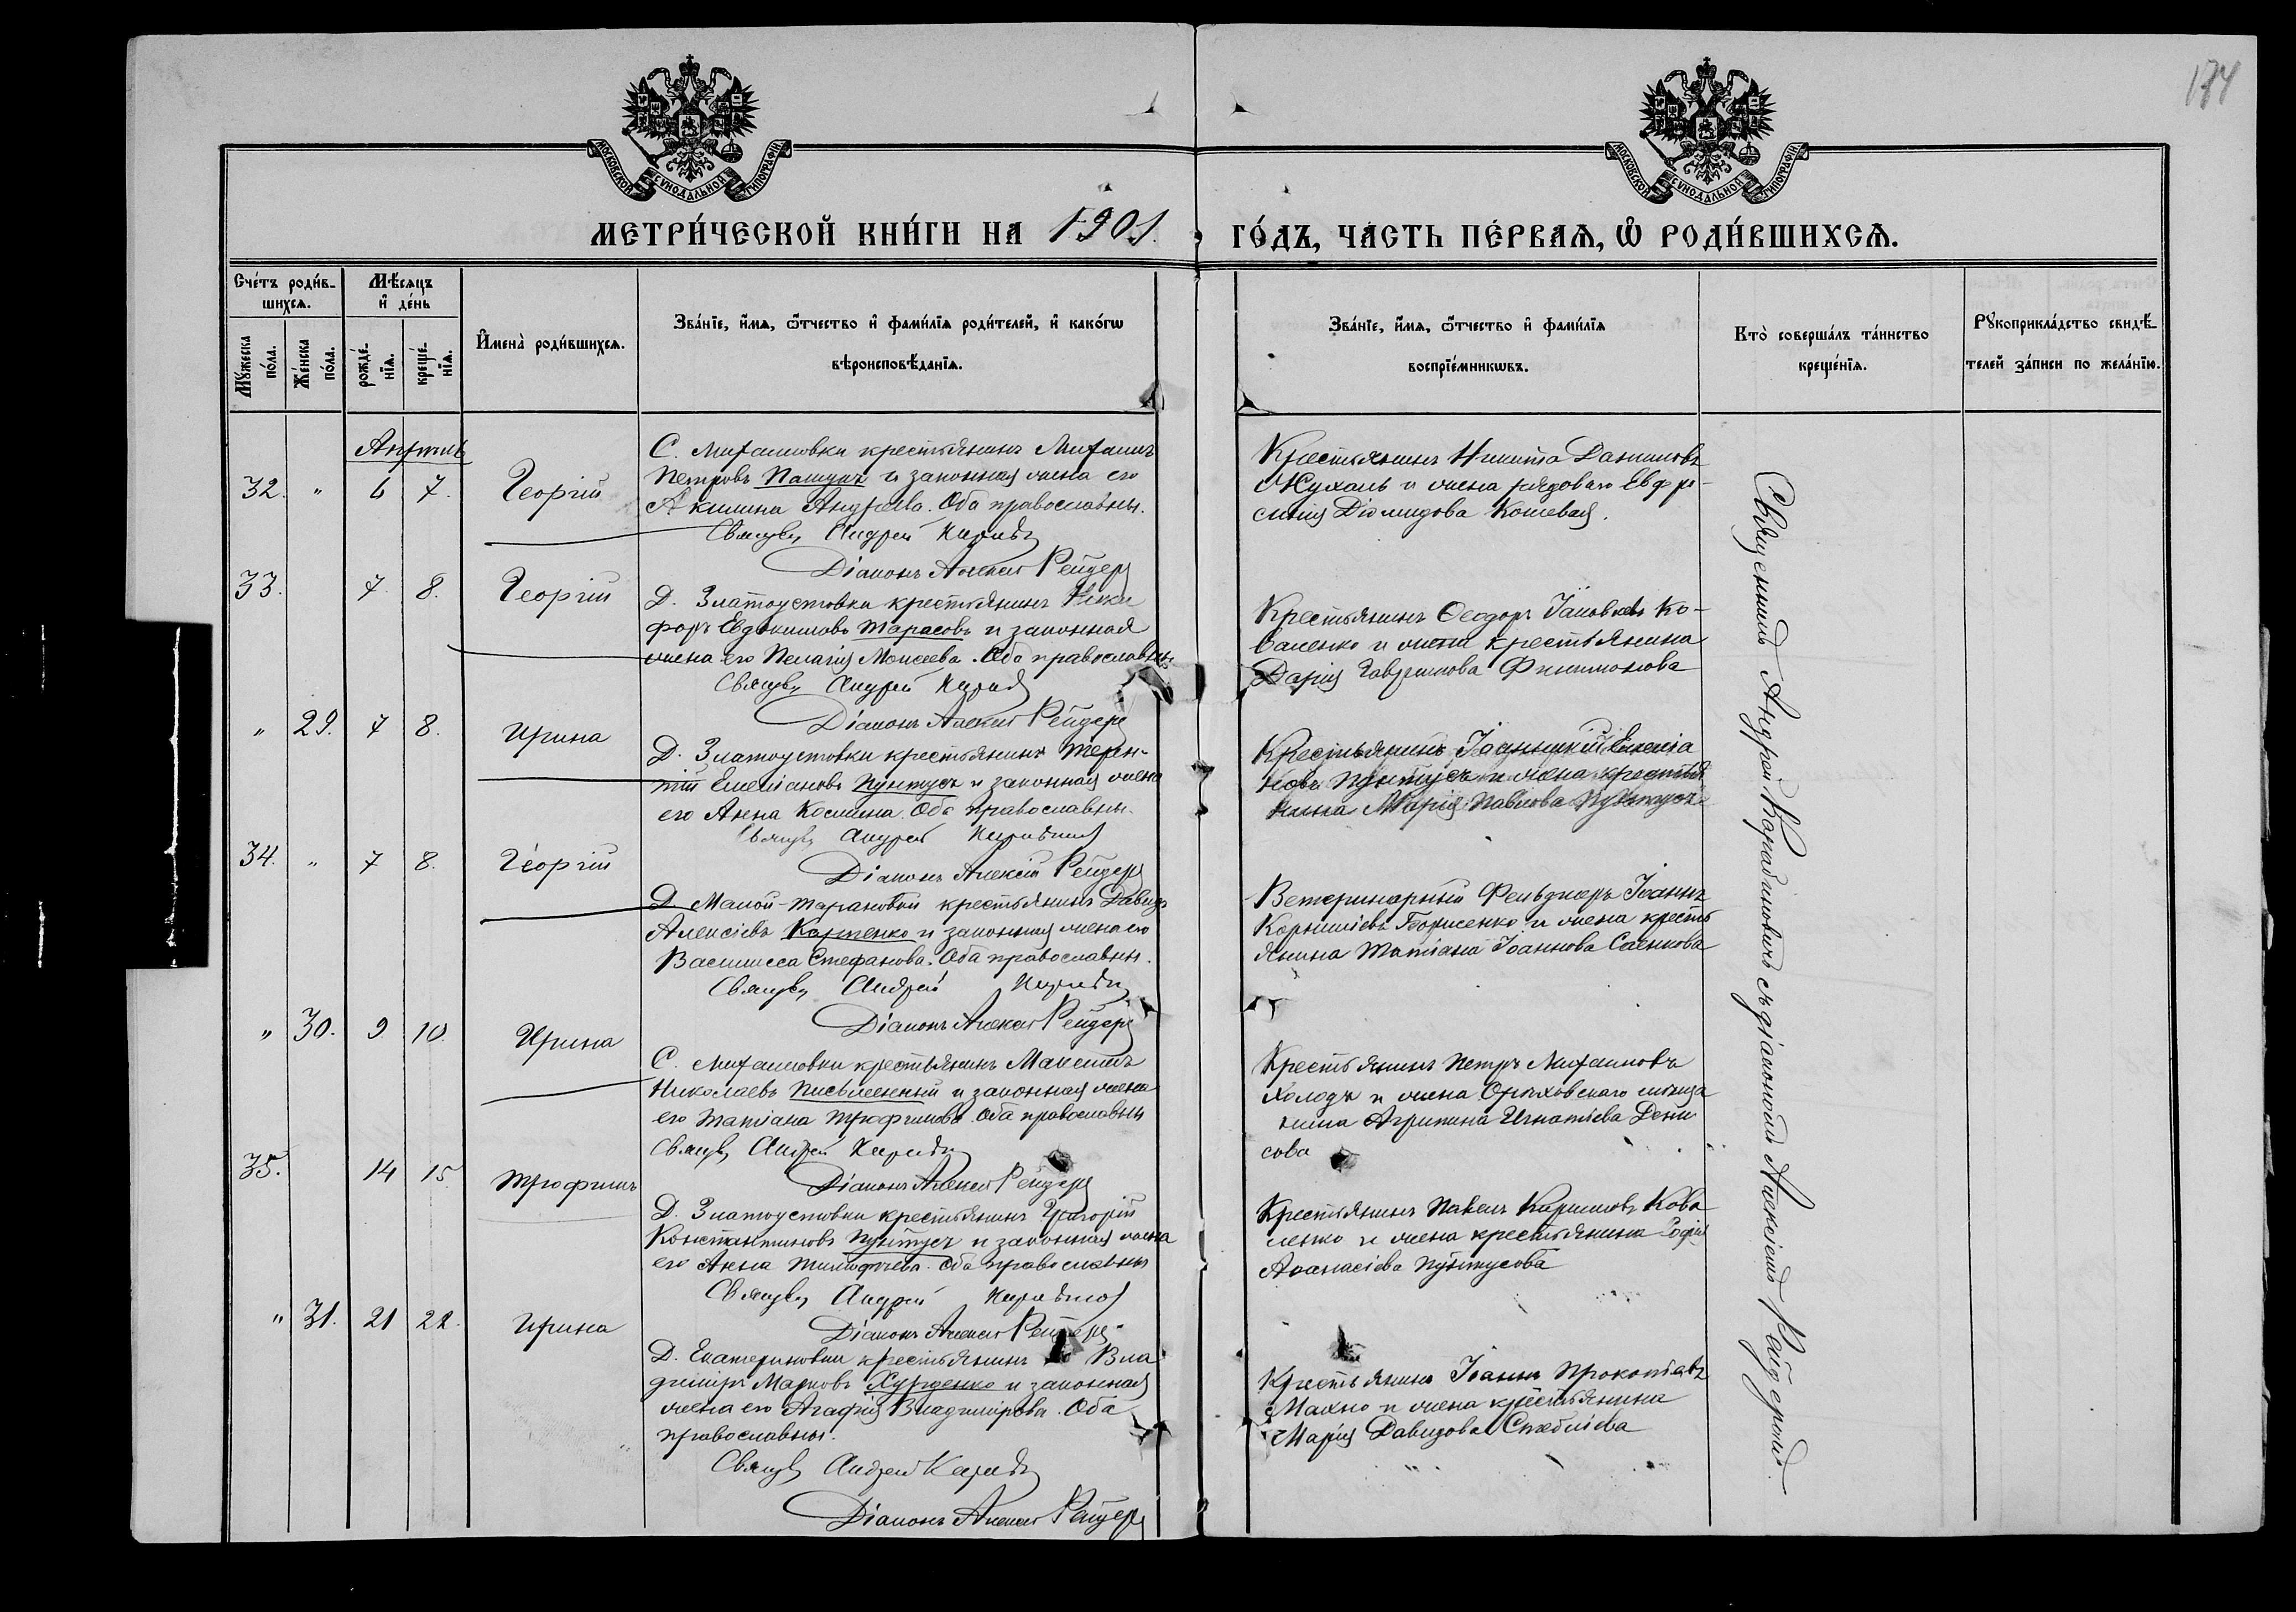 174
МОСКОВСКОЙ СѴНОДАЛЬНОЙ ТИПОГРАФІИ
МОСКОВСКОЙ СѴНОДАЛЬНОЙ ТИПОГРАФІИ
МЕТРИ́ЧЕСКОЙ КНИ́ГИ НА 1901. ГО́ДЪ, ЧА́СТЬ ПЕ́РВАѦ, Ѡ҆ РОДИ́ВШИХСѦ.
Сче́тъ роди́в-
шихсѧ.
Мꙋ́жеска по́ла.
Же́нска по́ла.
Мѣ́сѧцъ
и҆ де́нь
рожде́-
нїѧ.
креще́-
нїѧ.
И҆мена̀ роди́вшихсѧ.
Зва́нїе, и҆́мѧ, ѻ҆́тчество и҆ фами́лїѧ роди́телей, и҆ како́гѡ
вѣроисповѣ́данїѧ.
Зва́нїе, и҆́мѧ, ѻ҆́тчество и҆ фами́лїѧ
воспрїе́мникѡвъ.
Кто̀ соверша́лъ та́инство
креще́нїѧ.
Рꙋкоприкла́дство свидѣ́-
телей за́писи по жела́нїю.
Апрѣль
32. " 6 7. Георгій
С. Михайловки крестьянинъ Михаилъ
Петровъ Пащукъ и законная жена его
Акилина Андреева. Оба православны.
Священ. Андрей Карабин
Діаконъ Алексій Рейдеръ
Крестьянинъ Никита Даниловъ
Жухаль и жена рядоваго Евфро-
синія Діомидова Кошевая.
33. 7. 8. Георгій
Д. Златоустовки крестьянинъ Ники
форъ Евдокимовъ Тарасовъ и законная
жена его Пелагія Моисеева. Оба православны
Священ. Андрей Карабин
Діаконъ Алексій Рейдеръ
Крестьянинъ Ѳеодоръ Іаковлевъ Ко-
валенко и жена крестьянина
Дарія Гавриилова Филимонова
" 29. 7 8. Ирина
Д. Златоустовки крестьянинъ Терен-
тій Емеліановъ Пунтусъ и законная жена
его Анна Космина. Оба православны.
Священ. Андрей Карабин
Діаконъ Алексій Рейдеръ
Крестьянинъ Емелія
новъ Пунтусъ и жена крестья
нина Марія Павлова Пунтусъ
34. " 7 8. Георгій
Д. Малой-Тарановки крестьянинъ Давидъ
Алексіевъ Карпенко и законная жена его
Василисса Стефанова. Оба православны.
Священ. Андрей Карабин
Діаконъ Алексій Рейдеръ
Ветеринарный Фельдшеръ Іоаннъ
Корниліевъ Борисенко и жена кресть
янина Татіана Іоаннова Саенкова
" 30. 9 10. Ирина
С. Михайловки крестьянинъ Максимъ
Николаевъ Письменный и законная жена
его Татіана Трофимова. Оба православны
Священ. Андрей Карабин
Діаконъ Алексій Рейдеръ
Крестьянинъ Петръ Михаиловъ
Холодъ и жена Орѣховскаго мѣща
нина Агрипина Игнатіева Дени
сова
35. 14 15 Трофимъ
Д. Златоустовки крестьянинъ Григорій
Константиновъ Пунтусъ и законная жена
его Анна Тимофѣева. Оба православны
Священ. Андрей Карабин
Діаконъ Алексій Рейдеръ
Крестьянинъ Павелъ Кирилловъ Кова
ленко и жена крестьянина Софія
Аѳанасіева Пунтусова
" 31. 21 22. Ирина
Д. Екатериновки крестьянинъ Вла
диміръ Марковъ Хурденко и законная
жена его Агафія Владимірова. Оба
православны.
Священ. Андрей Карабин
Діаконъ Алексій Рейдеръ
Крестьянинъ Іоаннъ Прокопіевъ
Махно и жена крестьянина
Марія Давидова
Священникъ Андрей Карабиновичъ съ діакономъ Алексіемъ Рейдеромъ.